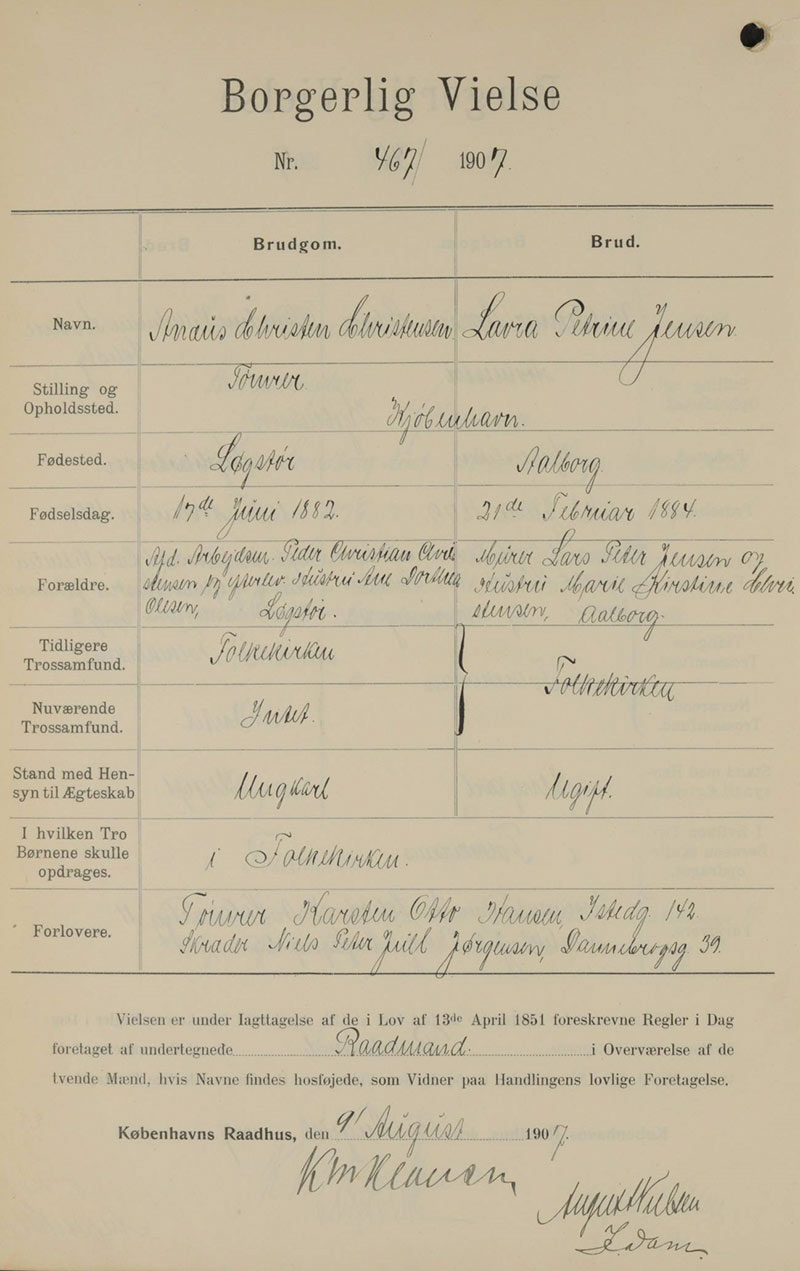 Borgerlig Vielse
Nr. 467/ 1907.
Brudgom. Brud.
Navn. Christen Christensen Laura Petrine Jensen.
Stilling og
Opholdssted.
Tømrer
Kjøbenhavn.
Fødested. Løgstør Aalborg.
Fødselsdag. 17de Juni 1882. 21de Februar 1884.
Forældre.
Afd. Arbejdsm. Peder Christian Chri
stensen og Hustru Ane Dorthea
Olesen, Løgstør.
Murer Lars Peter Jensen og
Hustru Marie Kirstine Chri
stensen, Aalborg.
Tidligere
Trossamfund.
Folkekirken
Folkekirken
Nuværende
Trossamfund.
Intet.
Stand med Hen-
syn til Ægteskab
Ungkarl Ugift.
I hvilken Tro
Børnene skulle
opdrages.
i Folkekirken.
Forlovere.
Tømrer Karsten Otto Hansen, Istedg. 142.
Skrædder Niels Peter Juill Jørgensen, Dannebrogsg. 39.
Vielsen er under Iagttagelse af de i Lov af 13de April 1851 foreskrevne Regler i Dag
foretaget af undertegnede Raadmand i Overværelse af de
tvende Mænd, hvis Navne findes hosføjede, som Vidner paa Handlingens lovlige Foretagelse.
Københavns Raadhus, den 9/ August 1907.
KM Klausen
August Nielsen
I Dam